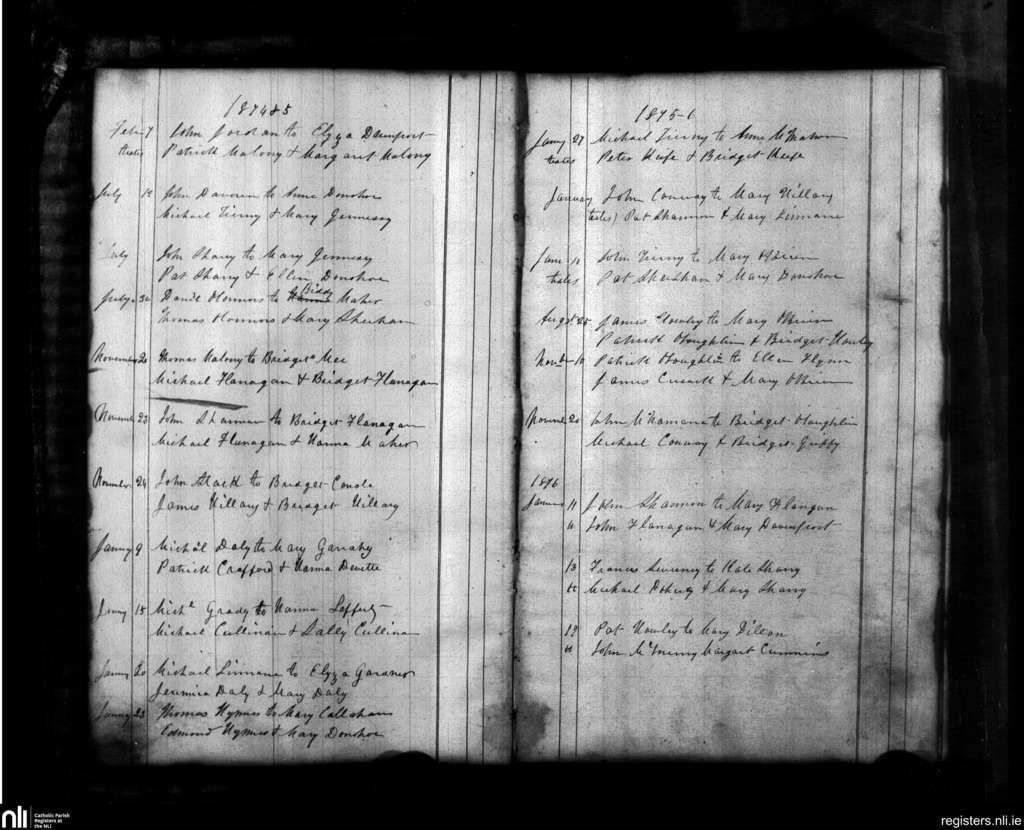 1874&5
Feb 7 John Jordan to Elyza Davenport
testes Patrick Malony & Margaret Malony
July 12 John Davoren to Anne Donohoe
Michael Tierny & Mary Gennessy
July John Shany to Mary Gennesy
Pat Shany & Ellen Donohoe
July 30 Daniel Connors to Biddy Maher
Thomas Connors & Mary Sheehan
November 20 Thomas Malony to Bridget Mee
Michael Flanagan & Bridget Flanagan
November 23 John Shannon to Bridget Flanagan
Michael Flanagan & Hanna Maher
November 24 John Stack to Bridget
James Hillary & Bridget Hillary
Janny 9 Michal Daly to Mary Garrahy
Patrick Crafford & Hanna
Janny 15 Michl Grady to Hanna Lafferty
Michael Cullinan & Sally Cullinan
Janny 20 Michael Linnane to Elyza Gardner
Jeremiea Daly & Mary Daly
Janny 23 Thomas Hynes to Mary Callahan
Edmond Hynes & Mary Donohoe
1875-6
Janny 27 Michael Tierny to Anne McMahon
testes Peter Keefe & Bridget Keefe
January John Conway to Mary Hillary
testes) Pat Shannon & Mary Linnane
June 10 John Tierny to Mary OBrien
testes Pat Sheehan & Mary Donohoe
Augst 25 James Hawley to Mary OBrien
Patrick Houghlin & Bridget Hawley
Novbr 10 Patrick Houghlin to Ellen Flynn
James Cusack & Mary OBrien
November 20 John McNamara to Bridget Houghlin
Michael Conway & Bridget Griffy
1876
January 11 John Shannon to Mary Flangan
" John Flanagan & Mary Davenport
13 Francis Sweeney to Kate Shany
" Michael Doherty & Mary Shany
19 Pat Hawley to Mary Dillon
" John McInerny Margaret Cummins
nli Catholic Parish
Registers at
the NLI
registers.nli.ie